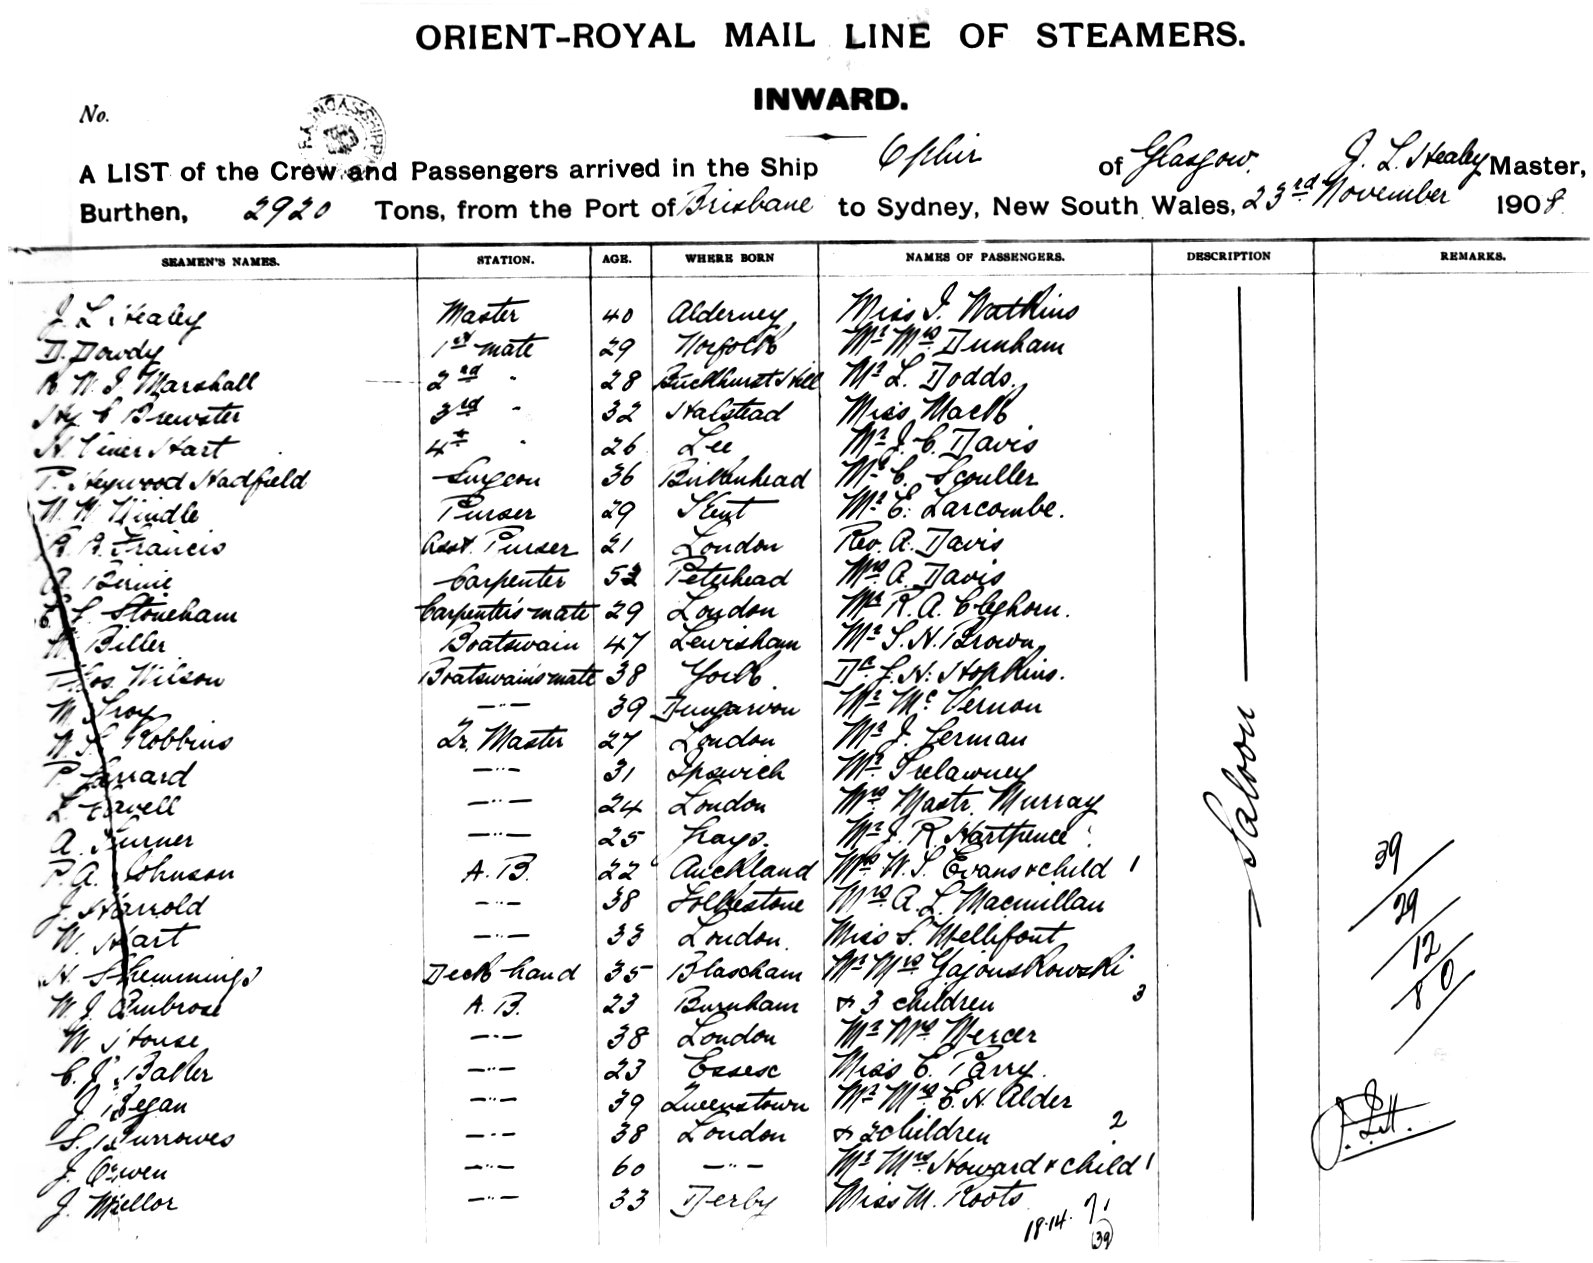 ORIENT-ROYAL MAIL LINE OF STEAMERS.
INWARD.
No.
A LIST of the Crew and Passengers arrived in the Ship Ophir of Glasgow. J. L. Healey Master,
Burthen, 2920 Tons, from the Port of Brisbane to Sydney, New South Wales, 23rd November 1908.
SEAMEN'S NAMES. STATION. AGE. WHERE BORN NAMES OF PASSENGERS. DESCRIPTION REMARKS.
J. L. Healey Master 40 Alderney Miss I. Watkins
D. Dowdy 1st mate 29 Norfolk Mr Mrs Dunham
Marshall 2nd " 28 Buckhurst Hill Mr L. Dodds.
Hy C Brewster 3rd " 32 Halstead Miss Mack
H. Viner Hart 4th " 26 Lee Mr J. C. Davis
P. Heywood Hadfield Surgeon 36 Birkenhead Mr C. Scouller
W. W. Windle Purser 29 Kent Mr E. Larcombe.
Francis Asst. Purser 21 London Rev. A. Davis
A. Birnie Carpenter 52 Peterhead Mrs A. Davis
Stoneham Carpenter's mate 29 London Mr R. A. Cleghorn.
W. Biller Boatswain 47 Lewisham Mr S. H. Brown
Thos. Wilson Boatswain's mate 38 York Dr L. H. Hopkins.
W. Troy —"— 39 Dungarvon Mr Mc Vernon
Robbins Qr. Master 27 London Mr J. Lerman
P. Garrard —"— 31 Ipswich Mr Trelawney
L. Favell —"— 24 London Mrs Mastr. Murray
A. Turner —"— 25 Grays. Mr J. R. Hartpence
P. A. Johnson A. B. 22 Auckland Mrs W. S. Evans & child 1
J. Harrold —"— 38 Folkestone Mrs A. L. Macmillan
W. Hart —"— 33 London. Miss S. Mellifont
H. Shemmings Deck hand 35 Blaxham Mr Mrs Gajouskowski
W. J. Ambrose A. B. 23 Burnham & 3 children 3
W. House —"— 38 London Mr Mrs Mercer
C. J. Baller —"— 23 Essex Miss C. Parry.
J. Regan —"— 39 Queenstown Mr Mrs E. H. Alder
S. Burrowes —"— 38 London & 2 children 2
J. Owen —"— 60 —"— Mr Mrs Howard & child 1
J. Mellor —"— 33 Derby Miss M. Roots
18.14. 7 1
39
Saloon
39
29
12
80